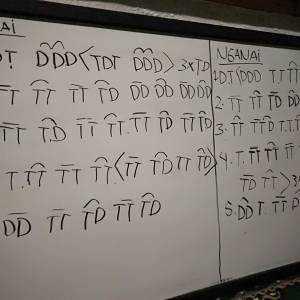 ḌT D̑D̑D<TDT D̑D̑D>3×T.D
T̅T T̑T T̅T T̑D D̅D D̑D D̅D D̑D
T̅T T̑.D T̅T T̑T. D̅D D̑D D̅D
T. T̑T T̅T T̑T<T̅T T̑D T̅T T̑D>
D̅D T̅T T̑D T̅T T̑D
NGANAI
1. DT<D̑DD T.T
2. T̅T T̑T T̅D D̑D
3. T̅T T̑T̑D T̅T
4. T. T̅T T̑T T̅T
T̅D T̑T>3
5. D̑D T. T̅T